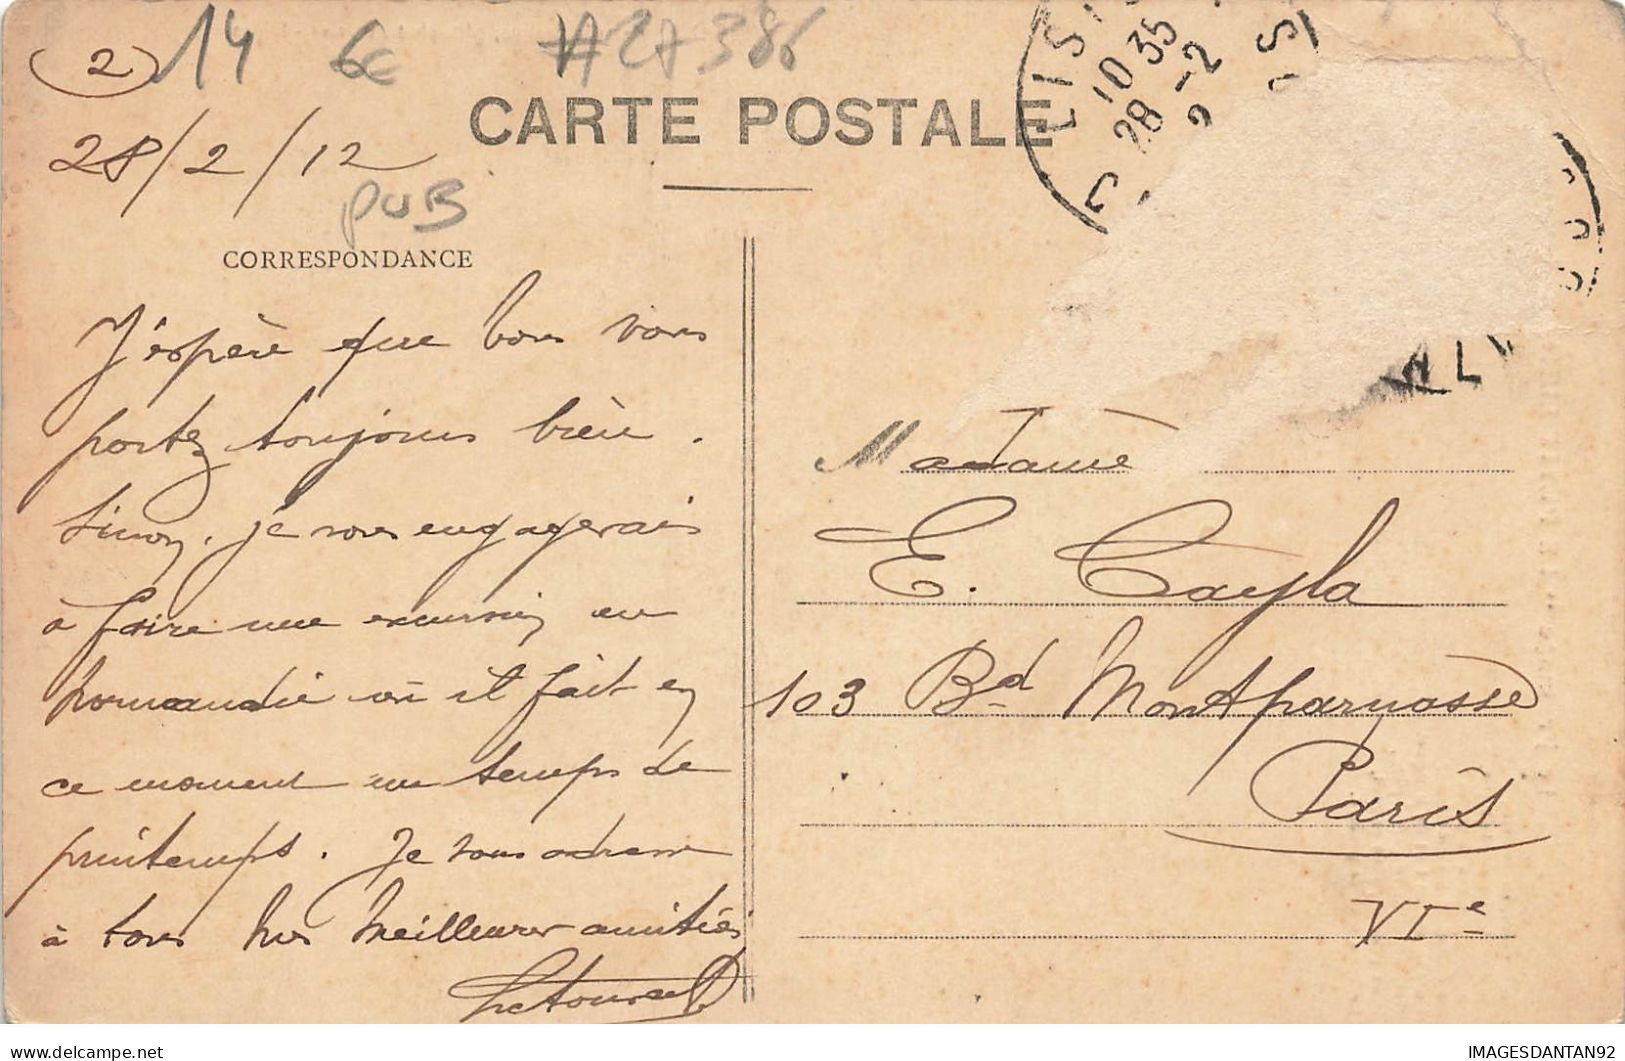 (2) 14 6€ #27386
28/2/12
PUB
CARTE POSTALE
LIS
10 35
28 -2
CORRESPONDANCE
J'espère que vous vous
portez toujours bien.
Sinon, je vous engagerais
à faire une excursion en
Normandie où il fait en
ce moment un temps de
printemps. Je vous adresse
à tous mes meilleures amitiés
Madame
E. Cayla
103 Bd Montparnasse
Paris
VIe
IMAGESDANTAN92